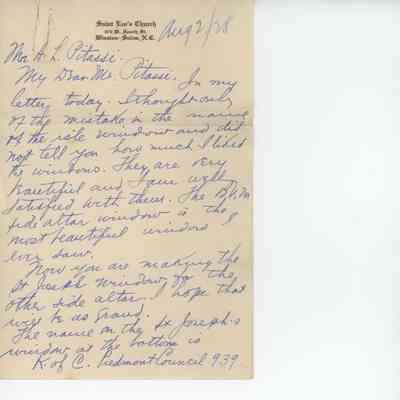 Saint Leo's Church
Winston-Salem, N.C.
Aug 2/28
Mr. A. L. Pitassi.
My Dear Mr. Pitassi. In my
letter today. I thought only
of the mistake in the name
of the side window and did
not tell you how much I liked
the windows. They are very
beautiful and I am well
satisfied with them. The B.V.M
side altar window is the
most beautiful window I
ever saw.
Now you are making the
St Joseph window for the
other side altar. I hope that
will be as grand.
The name on the St Joseph's
window at the bottom is
K. of C. Piedmont Council 939